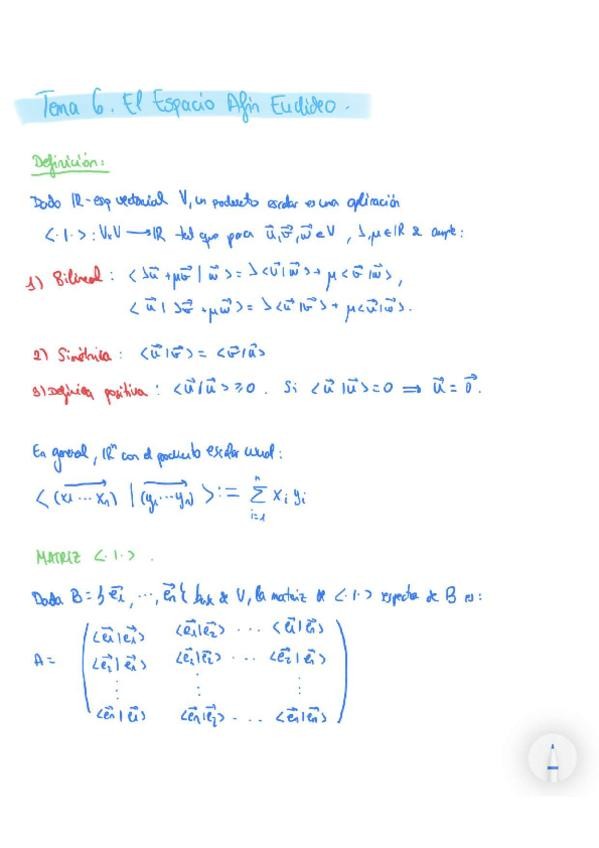 Tema 6. El Espacio Afín Euclideo.
Definición:
Dado R-esp vectorial V, un producto escalar es una aplicación
<·|·>: VxV → ℝ tal que para u⃗, v⃗, w⃗ ∈ V, λ, μ ∈ ℝ se cumple:
1) Bilineal: <λu⃗ + μv⃗ | w⃗> = λ<u⃗|w⃗> + μ<v⃗|w⃗>,
<u⃗ | λv⃗ + μw⃗> = λ<u⃗|v⃗> + μ<u⃗|w⃗>.
2) Simétrica: <u⃗|v⃗> = <v⃗|u⃗>
3) Definida positiva: <u⃗|u⃗> ≥ 0. Si <u⃗|u⃗> = 0 ⟹ u⃗ = 0⃗.
En general, ℝⁿ con el producto escalar usual:
<(x1 ... xn) | (y1 ... yn)> := Σ_{i=1}^{n} xi yi
MATRIZ <·|·>.
Dada B = {e⃗1, ..., e⃗n} base de V, la matriz de <·|·> respecto de B es:
<e⃗1|e⃗1> <e⃗1|e⃗2> ... <e⃗1|e⃗n>
A = <e⃗2|e⃗1> <e⃗2|e⃗2> ... <e⃗2|e⃗n>
⋮ ⋮ ⋮
<e⃗n|e⃗1> <e⃗n|e⃗2> ... <e⃗n|e⃗n>